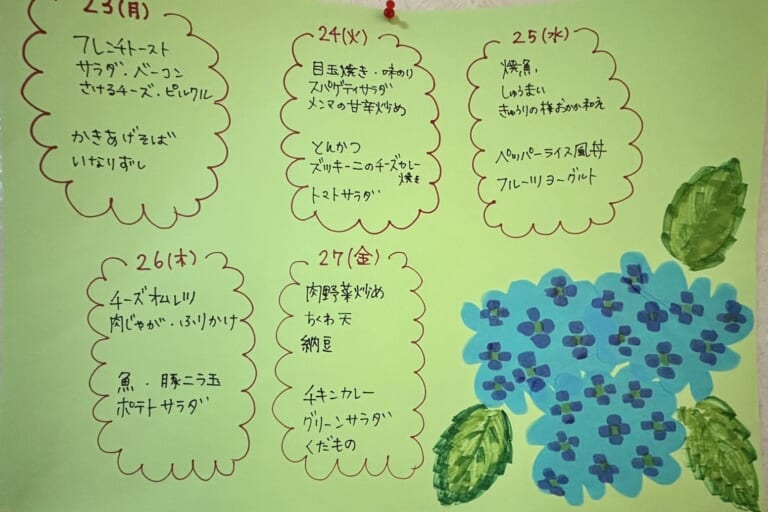 23(月)
フレンチトースト
サラダ・ベーコン
さけるチーズ・ピルクル
かきあげそば
いなりずし
24(火)
目玉焼き・味のり
スパゲティサラダ
メンマの甘辛炒め
とんかつ
ズッキーニのチーズカレー
焼き
トマトサラダ
25(水)
焼魚
しゅうまい
きゅうりの梅おかか和え
ペッパーライス風丼
フルーツヨーグルト
26(木)
チーズオムレツ
肉じゃが・ふりかけ
魚・豚ニラ玉
ポテトサラダ
27(金)
肉野菜炒め
ちくわ天
納豆
チキンカレー
グリーンサラダ
くだもの